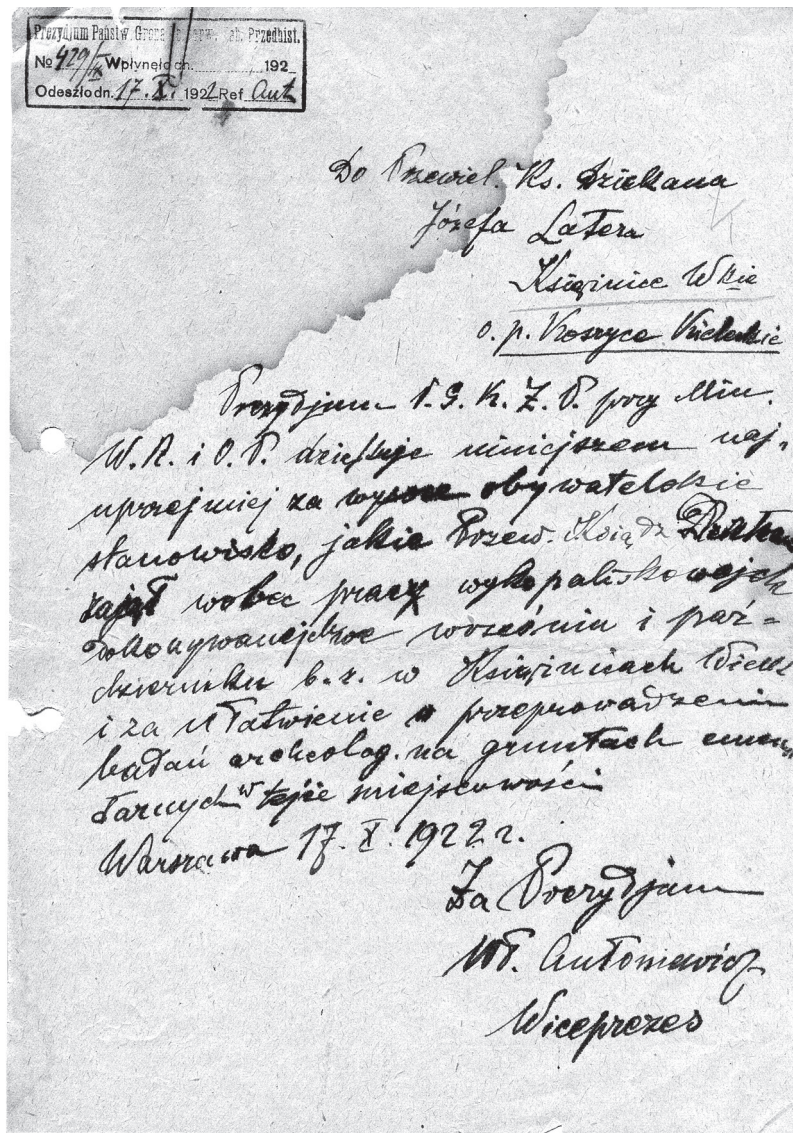 Prezydjum Państw. Grona Konserw. Zab. Przedhist.
No 429/IX Wpłynęło dn. 192
Odeszło dn. 17. X. 1922 Ref Ant
Do Przewiel. Ks. Dziekana
Józefa Latera
Książnice Wkie
o. p. Koszyce Kieleckie
Prezydjum P. G. K. Z. P. przy Min.
W. R. i O. P. dziękuje niniejszem naj-
uprzejmiej za obywatelskie
stanowisko, jakie Przew. Ksiądz Dziekan
zajął wobec pracy wykopaliskowych
dokonywanej we wrześniu i paź-
dzierniku b. r. w Książnicach Wielk
i za ułatwienie przeprowadzenia
badań archeolog. na gruntach
w tejże miejscowości
Warszawa 17. X. 1922 r.
Za Prezydjum
Wł. Antoniewicz
Wiceprezes